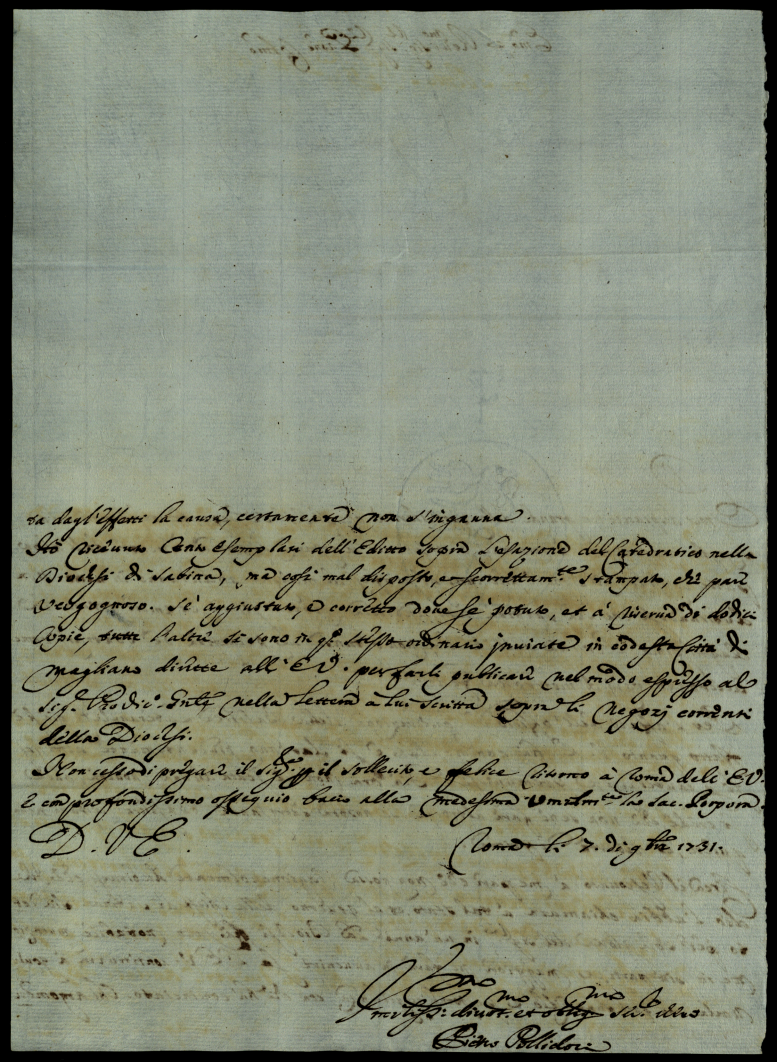 ta dagl'effetti la causa, certamente non s'inganna.
Hò ricevuto Cento esemplari dell'Editto sopra l'esazione del Catedratico nella
Diocesi di Sabina, ma così mal disposto, e scorrettam.te stampato, che pare
vergognoso. Sè aggiustato, e corretto dove sè potuto, et à riserva di dodici
copie, tutte l'altre si sono in q.sto stesso ordinario inviate in codesta Città di
Magliano dirette all'E.V. per farle publicare nel modo espresso al
Sig.r nella lettera à lui scritta sopra li negozj correnti
della Diocesi.
Non cesso di pregare il Sig.re p il sollecito, e felice ritorno à Roma dell'E.V.
e con profondissimo ossequio bacio alla medesima umilm.te la Sac. Porpora.
D. V. E.
Roma li 7. di 9bre 1731.
Umo
devot.mo et oblig.mo ser.re vero
Pietro Pollidori